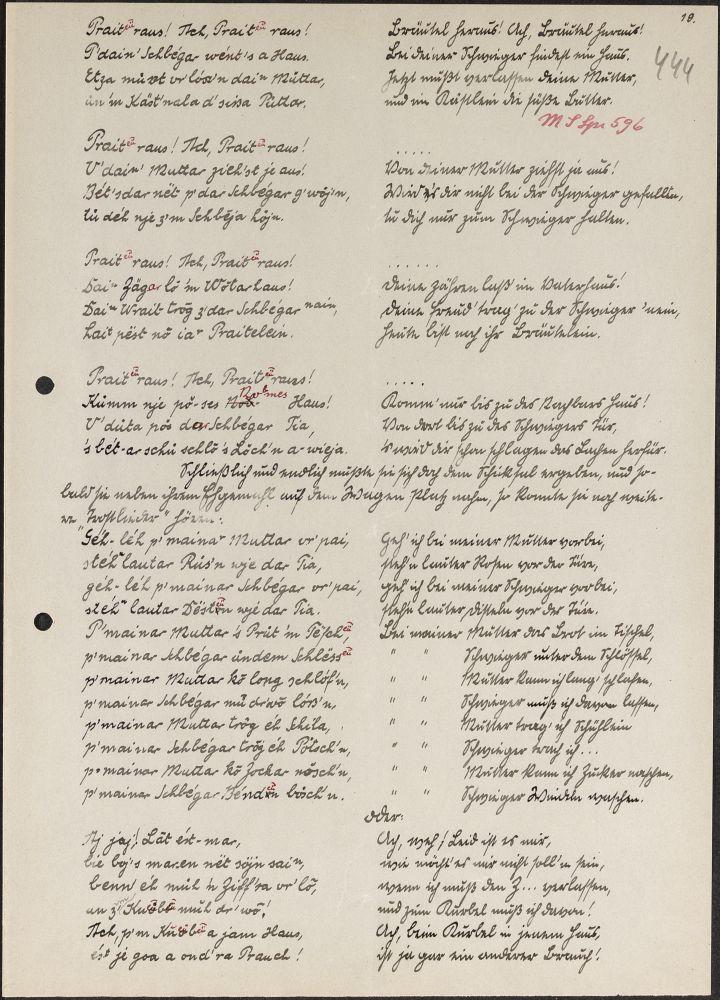 19.
444
Praitᵉⁿ raus! Ach, Praitᵉⁿ raus!
P'dain' Schbégar wént's a Haus.
Etza mußt vr'lôss'n daiⁿ Muttar,
un'm Käst'nala d' sissa Puttar.
Bräutel heraus! Ach, Bräutel heraus!
Bei deiner Schwieger findest ein Haus.
Jetzt mußt verlassen deine Mutter,
und im Kästlein die süße Butter.
M S Spr 596
Praitᵉⁿ raus! Ach, Praitᵉⁿ raus!
V'dain' Muttar zieh'st je aus!
Bét'sdar nét p'dar Schbégar g'wôj'n,
tú déh nje z'm Schbéja hôjn.
.....
Von deiner Mutter ziehst ja aus!
Wird es dir nicht bei der Schwieger gefallen,
tu dich nur zum Schwieger halten.
Praitᵉⁿ raus! Ach, Praitᵉⁿ raus!
Daiⁿ Zägar lô im Wôtarhaus!
Daiⁿ Wrait trôg z'dar Schbégar nain,
hait pëst nô iaʳ Praitelein.
......
Deine Zähren laß im Vaterhaus!
Deine Freud' trag' zu der Schwieger 'nein,
heute bist noch ihr Bräutelein.
Praitᵉⁿ raus! Ach, Praitᵉⁿ raus!
Kumm nje pô-ses Haus!
V'duta pôs dar Schbégar Tia,
's bét-ar schu schlô's Lôch'n a-wieja.
.....
Komm' nur bis zu des Nachbars Haus!
Von dort bis zu des Schwiegers Tür,
's wird dir schon schlagen das Lachen herfür.
Schließlich und endlich mußte sie sich doch dem Schicksal ergeben, und so-
bald sie neben ihrem Ehgemahl auf dem Wagen Platz nahm, so konnte sie noch weite-
re "Trostlieder" hören:
Géh-léh p'mainaʳ Muttar vr'pai,
stéhⁿ lautar Rus'n wje dar Tia,
géh-léh p'mainar Schbégar vr'pai,
stéhⁿ lautar Déstᵉⁿ wjé dar Tia.
P'mainar Muttar 's Prut 'm Téschᵉⁿ,
p'mainar Schbégar undem Schlëssᵉⁿ
p'mainar Muttar kô long schlôf'n,
p'mainar Schbégar mú drvô lôss'n,
p'mainar Muttar trôg éh Schila,
p'mainar Schbégar trôj éh Pôtsch'n,
p'mainar Muttar kô Zockar nôsch'n,
p'mainar Schbégar Béndᵉⁿ bôsch'n.
Geh' ich bei meiner Mutter vorbei,
steh'n lauter Rosen vor der Türe,
geh' ich bei meiner Schwieger vorbei,
steh'n lauter Disteln vor der Türe.
Bei meiner Mutter das Brot im Tischel,
" " Schwieger unter dem Schlössel,
" " Mutter kann ich lang' schlafen,
" " Schwieger muß ich davon lassen,
" " Mutter trag' ich Schühlein
" " Schwieger trag ich ...
" " Mutter kann ich Zucker naschen,
" " Schwieger Windeln waschen.
oder:
Aj jaj! Lät ést-mar,
bie boj's mar.en nét söjn saiⁿ,
benn éh muh 'n Ziff'ra vr'lô,
un z' muh dr'wô!
Ach, p'm a jam Haus,
ést jé goa a ond'ra Prauch!
Ach, weh! Leid ist es mir,
wie möcht' es mir nicht soll'n sein,
wenn ich muß den Z... verlassen,
und zum Kurbel muß ich davon!
Ach, beim Kurbel in jenem Haus,
ist ja gar ein anderer Brauch!